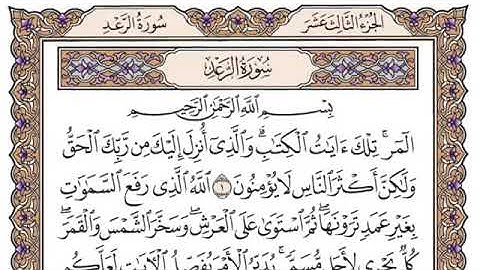 الجزء الثالث عشر
سورة الرعد
سورة الرعد
بسم الله الرحمن الرحيم
الٓمٓر ۚ تِلْكَ ءَايَٰتُ ٱلْكِتَٰبِ ۗ وَٱلَّذِىٓ أُنزِلَ إِلَيْكَ مِن رَّبِّكَ ٱلْحَقُّ
وَلَٰكِنَّ أَكْثَرَ ٱلنَّاسِ لَا يُؤْمِنُونَ ١ ٱللَّهُ ٱلَّذِى رَفَعَ ٱلسَّمَٰوَٰتِ
بِغَيْرِ عَمَدٍ تَرَوْنَهَا ۖ ثُمَّ ٱسْتَوَىٰ عَلَى ٱلْعَرْشِ ۖ وَسَخَّرَ ٱلشَّمْسَ وَٱلْقَمَرَ ۖ
كُلٌّ يَجْرِى لِأَجَلٍ مُّسَمًّى ۚ يُدَبِّرُ ٱلْأَمْرَ يُفَصِّلُ ٱلْءَايَٰتِ لَعَلَّكُم